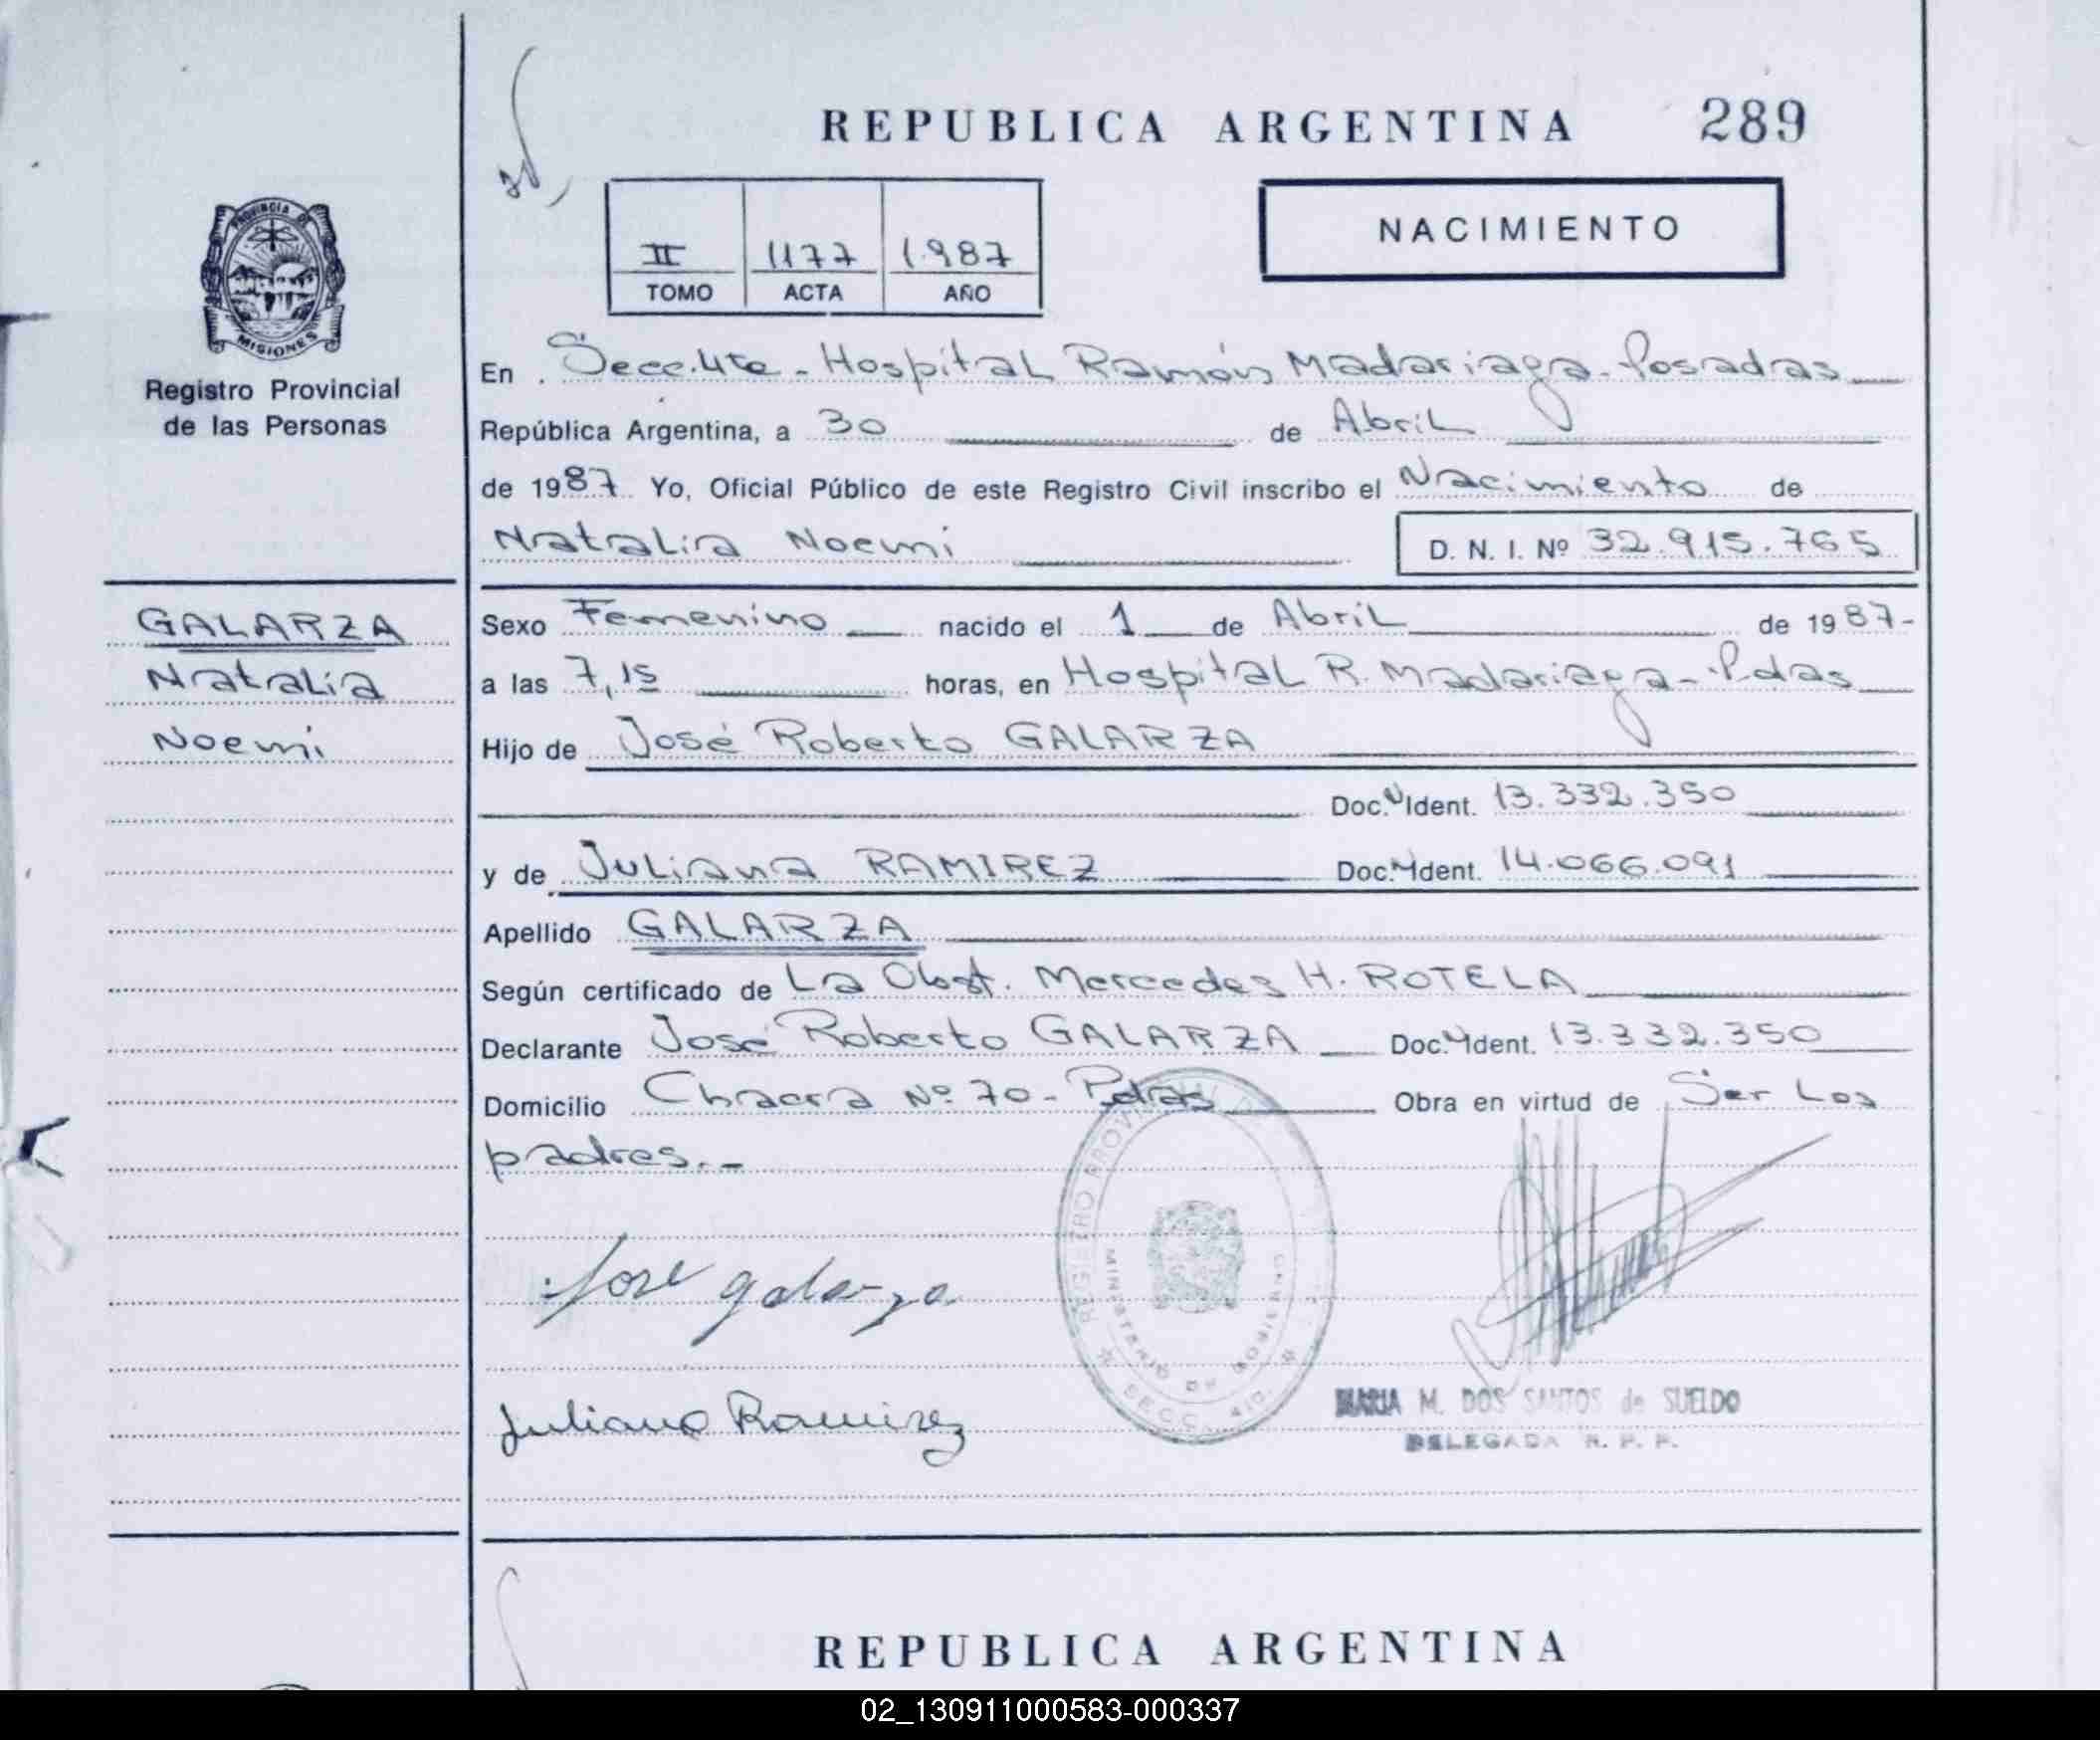 REPUBLICA ARGENTINA 289
II 1177 1.987
TOMO ACTA AÑO
NACIMIENTO
PROVINCIA DE
MISIONES
Registro Provincial
de las Personas
En Secc. 4ta - Hospital Ramón Madariaga - Posadas
República Argentina, a 30 de Abril
de 1987 Yo, Oficial Público de este Registro Civil inscribo el Nacimiento de
Natalia Noemi D. N. I. Nº 32.915.765
GALARZA
Natalia
Noemi
Sexo Femenino nacido el 1 de Abril de 1987-
a las 7,15 horas, en Hospital R. Madariaga - Pdas
Hijo de José Roberto GALARZA
Doc. Ident. 13.332.350
y de Juliana RAMIREZ Doc. Ident. 14.066.091
Apellido GALARZA
Según certificado de La Obst. Mercedes H. ROTELA
Declarante José Roberto GALARZA Doc. Ident. 13.332.350
Domicilio Chacra Nº 70 - Pdas Obra en virtud de Ser Los
padres.-
Jose galarza
Juliana Ramirez
REGISTRO PROVINCIAL
MINISTERIO DE GOBIERNO
SECC. 4ta.
MARIA M. DOS SANTOS de SUELDO
DELEGADA R. P. P.
REPUBLICA ARGENTINA
02_130911000583-000337